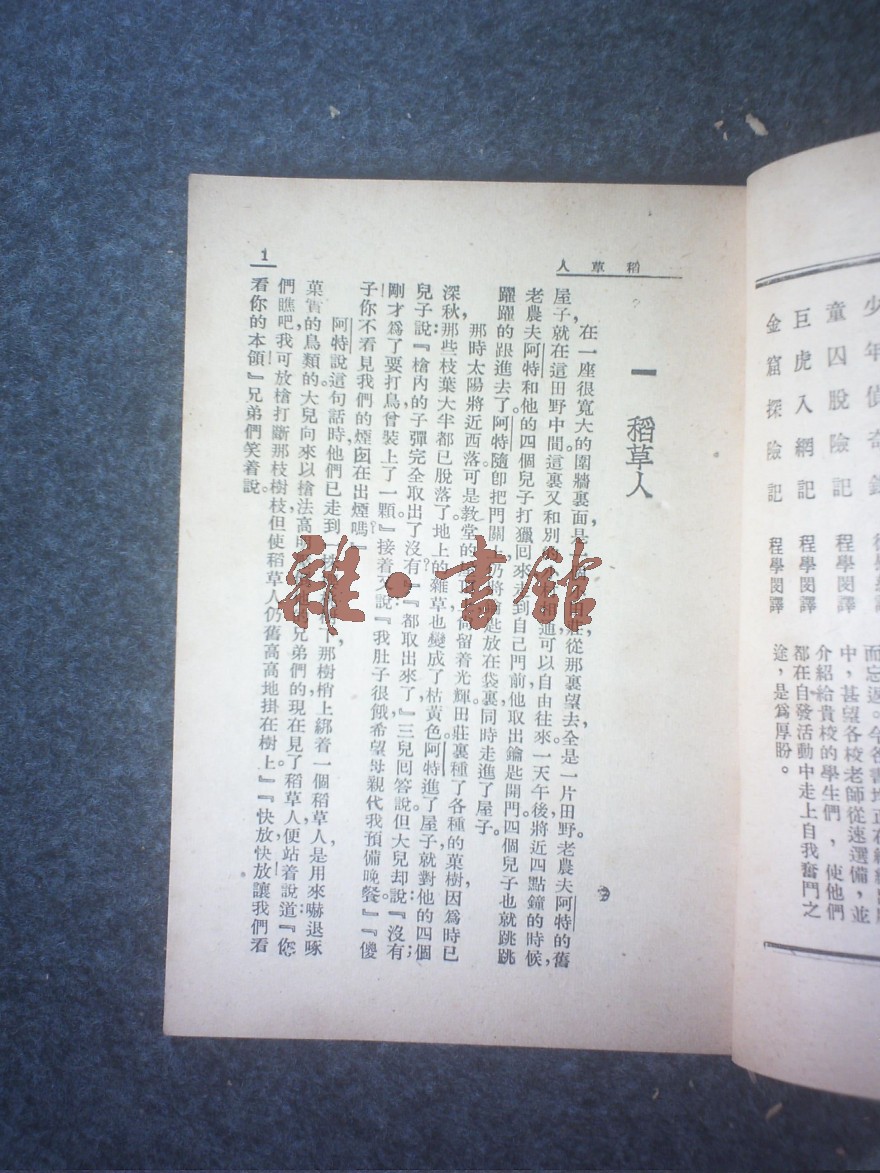 少年偵奇
童囚脫險記 程學閔譯
巨虎入網記 程學閔譯
金窟探險記 程學閔譯
而忘返。今各書均正在
中，甚望各校老師從速選備，並
介紹給貴校的學生們，使他們
都在自發活動中走上自我奮鬥之
途，是爲厚盼。
稻草人
一 稻草人
在一座很寬大的圍牆裏面是 莊從那裏望去，全是一片田野。老農夫阿特的舊
屋子，就在這田野中間。這裏又和別 相通可以自由往來。一天午後將近四點鐘的時候，
老農夫阿特和他的四個兒子打獵回來，走到自己門前，他取出鑰匙開門，四個兒子也就跳跳
躍躍的跟進去了。阿特隨卽把門關上，仍將 匙放在袋裏，同時走進了屋子。
那時太陽將近西落，可是教堂的 尚留着光輝。田莊裏種了各種的菓樹，因爲時已
深秋，那些枝葉大半都已脫落了。地上的雜草也變成了枯黃色。阿特進了屋子，就對他的四個
兒子說：『槍內的子彈完全取出了沒有？』『都取出來了。』三兒回答說。但大兒却說：『沒有；
剛才爲了要打鳥，曾裝上了一顆。』接着又說：『我肚子很餓，希望母親代我預備晚餐。』『傻
子，你不看見我們的煙囪在出煙嗎？』
阿特說這句話時，他們已走到一 下，那樹梢上綁着一個稻草人，是用來嚇退啄
菓實的鳥類的。大兒向來以槍法高明 兄弟們的，現在見了稻草人，便站着說道：『你
們瞧吧，我可放槍打斷那枝樹枝，但使稻草人仍舊高高地掛在樹上。』『快放，快放，讓我們看
看你的本領！』兄弟們笑着說。
1
雜·書館